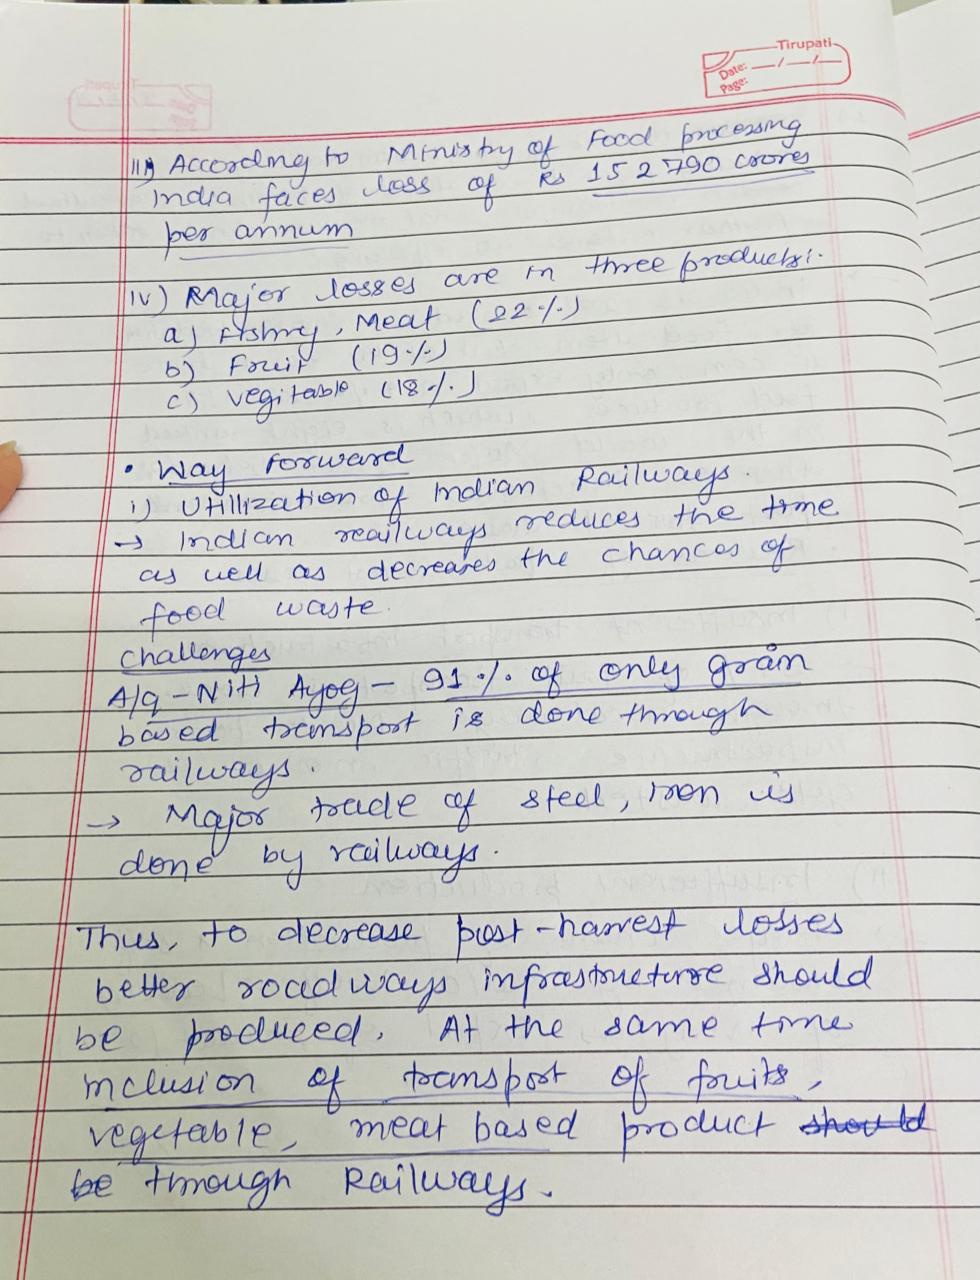 Tirupati
Date: __/__/__
Page:
iii) According to Ministry of Food processing
India faces loss of Rs 152790 crores
per annum
iv) Major losses are in three products:-
a) Fishry, Meat (22%)
b) Fruit (19%)
c) vegitable (18%)
• Way forward
i) Utillization of Indian Railways.
→ Indian reailways reduces the time
as well as decreases the chances of
food waste.
Challenges
A/q - Niti Ayog - 91% of only grain
based transport is done through
railways.
→ Major trade of steel, iron is
done by railways.
Thus, to decrease post-harvest losses
better roadways infrastructure should
be produced. At the same time
inclusion of transport of fruits,
vegetable, meat based product should
be through Railways.